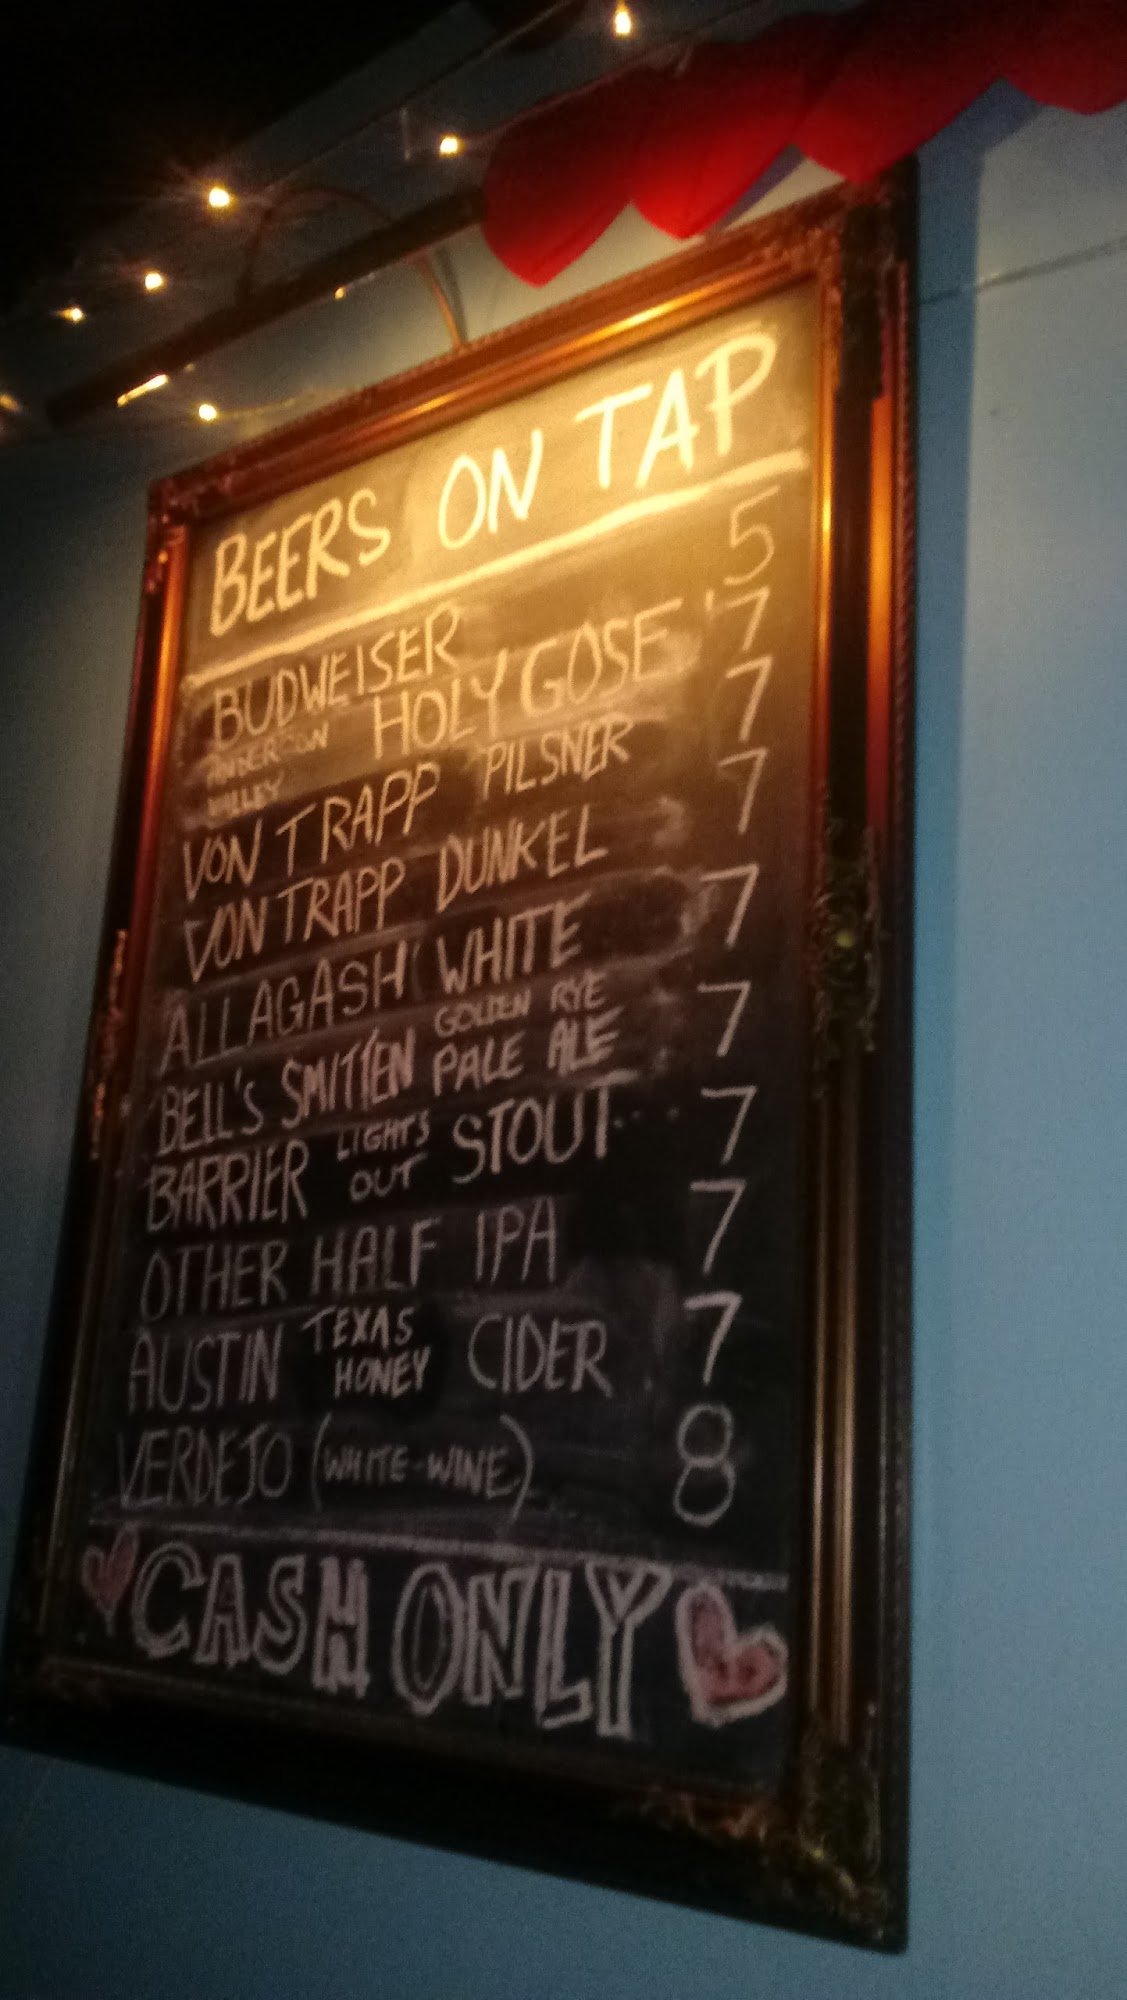 BEERS ON TAP
BUDWEISER 5
ANDERSON VALLEY HOLY GOSE 7
VON TRAPP PILSNER 7
VON TRAPP DUNKEL 7
ALLAGASH WHITE 7
BELL'S SMITTEN GOLDEN RYE PALE ALE 7
BARRIER LIGHTS OUT STOUT 7
OTHER HALF IPA 7
AUSTIN TEXAS HONEY CIDER 7
VERDEJO (WHITE-WINE) 8
CASH ONLY